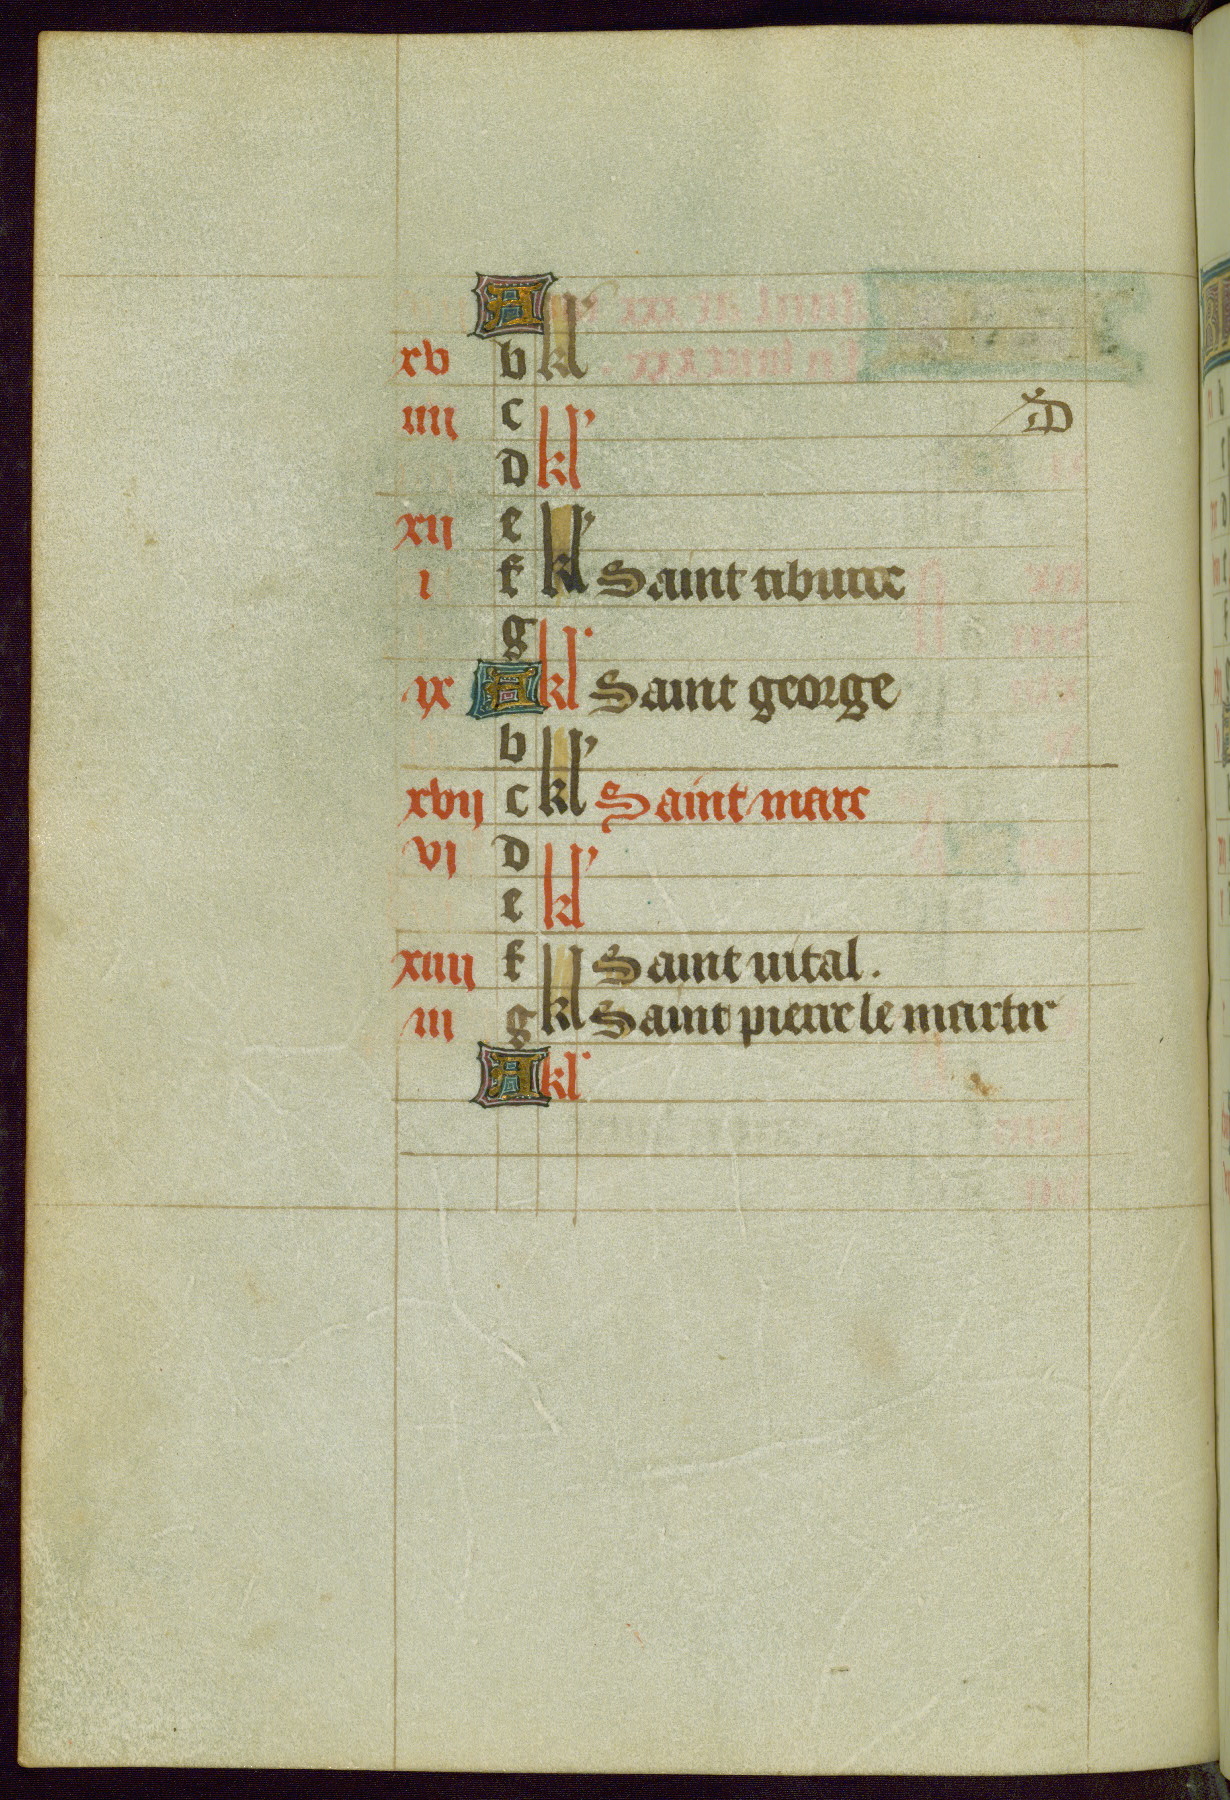 A
xv b kl
iiii c
D kl
xii e
i f kl Saint tiburce
g
ix A kl Saint george
b
xvij c kl Saint marc
vi D
e kl
xiiij f Saint uital.
iii g kl Saint pierre le martir
A kl